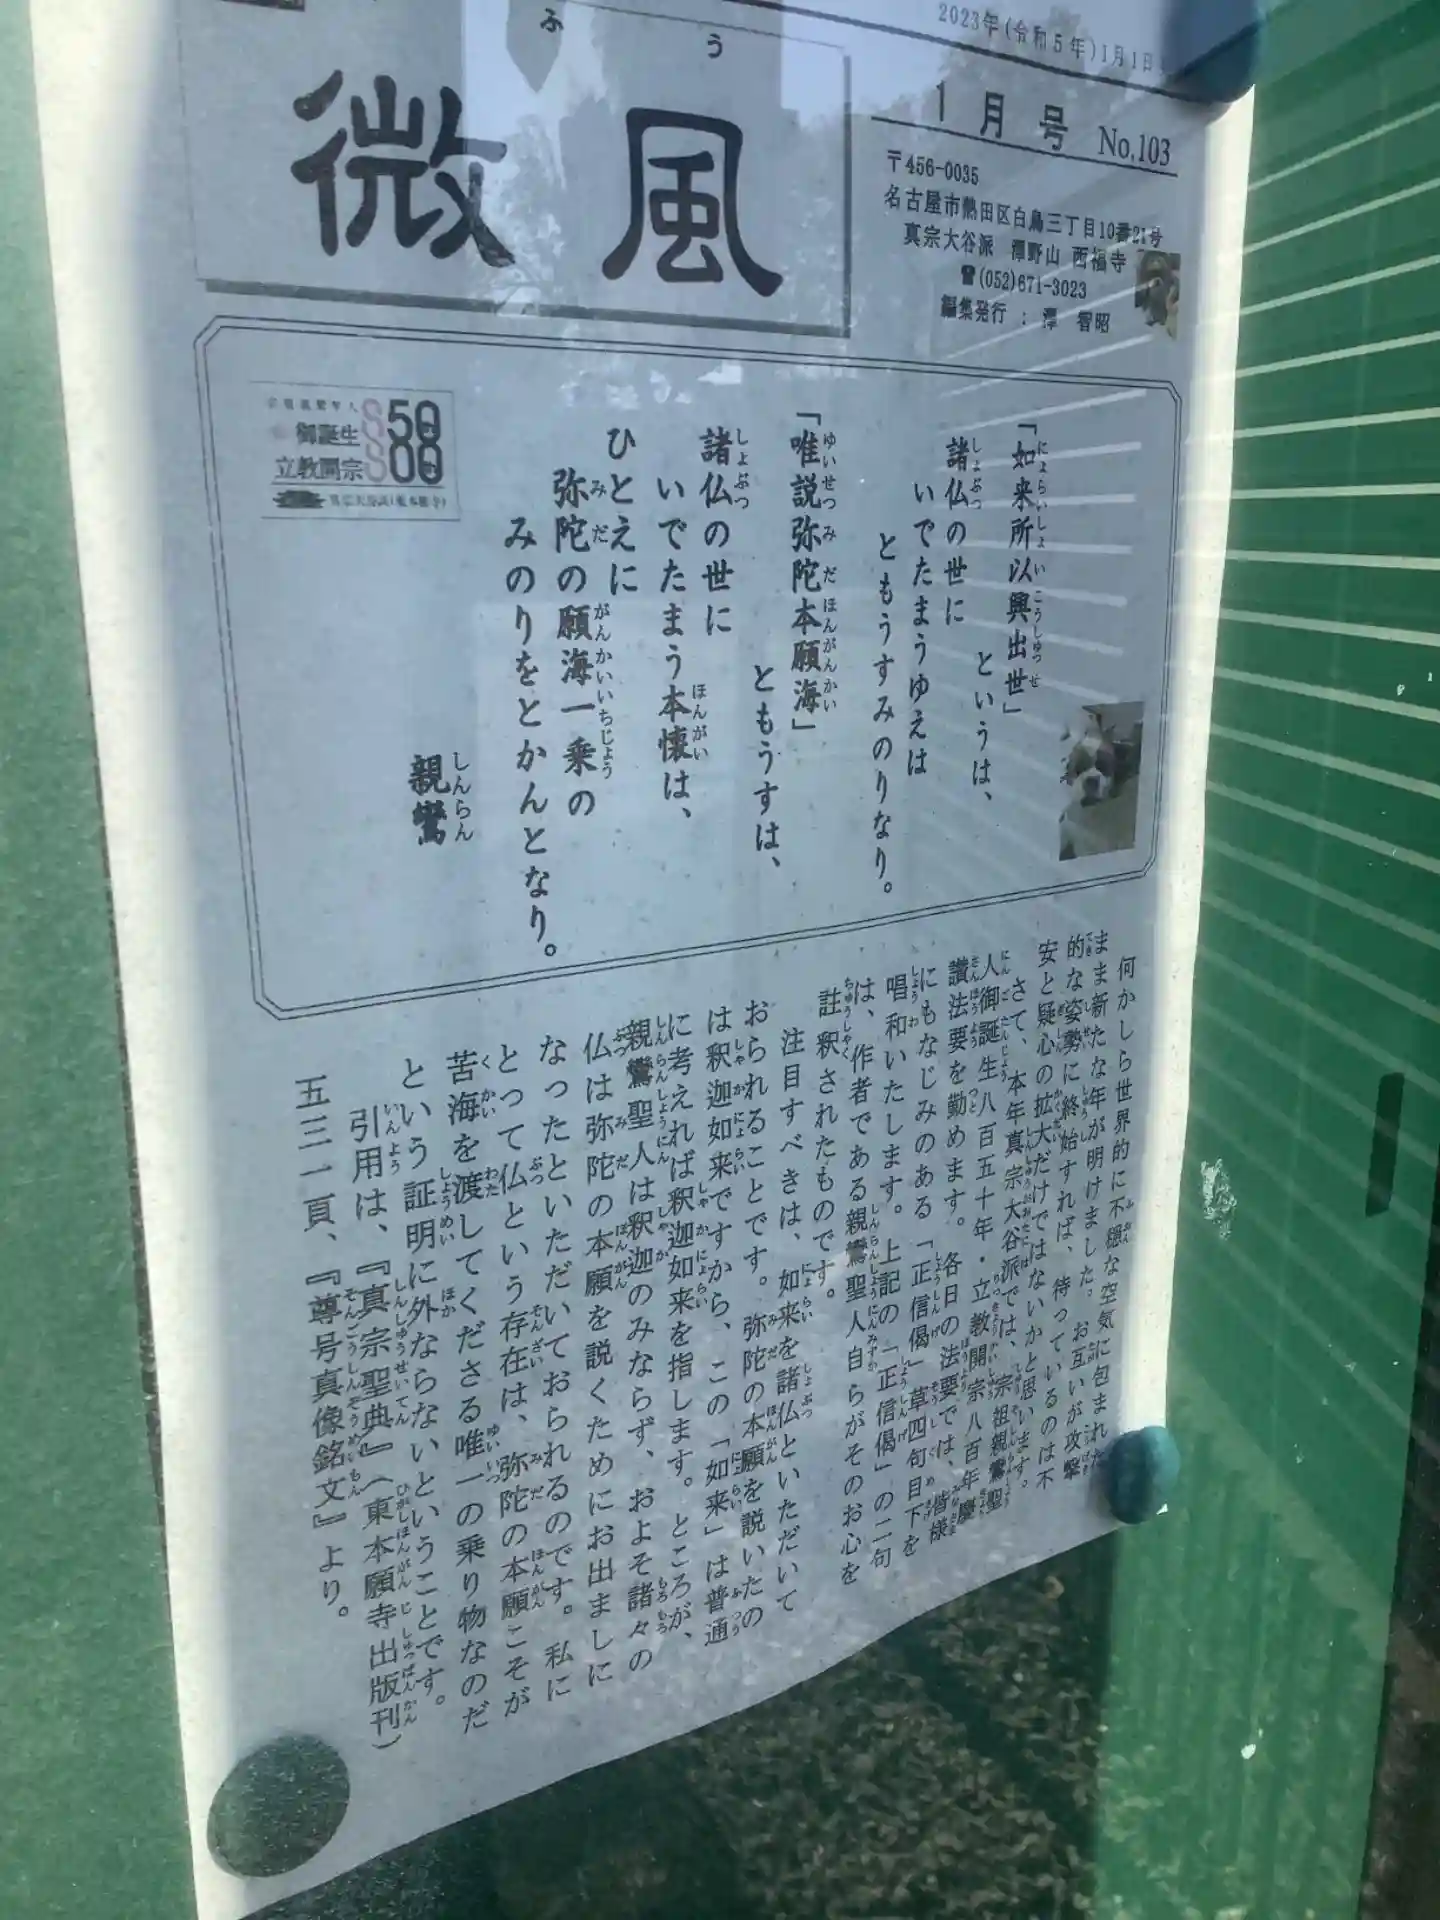 ふ う
微風
2023年(令和5年)1月1日
1月号 No.103
〒456-0035
名古屋市熱田区白鳥三丁目10番21号
真宗大谷派 澤野山 西福寺
☎(052)671-3023
編集発行 : 澤 智昭
「如来所以興出世」
というは、
諸仏の世に
いでたまうゆえは
ともうすみのりなり。
「唯説弥陀本願海」
ともうすは、
諸仏の世に
いでたまう本懐は、
ひとえに
弥陀の願海一乗の
みのりをとかんとなり。
親鸞
850
御誕生
800
立教開宗
何かしら世界的に不穏な空気に包まれた
まま新たな年が明けました。お互いが攻撃
的な姿勢に終始すれば、待っているのは不
安と疑心の拡大だけではないかと思います。
さて、本年真宗大谷派では、宗祖親鸞聖
人御誕生八百五十年・立教開宗八百年慶
讃法要を勤めます。各日の法要では、皆様
にもなじみのある「正信偈」草四句目下を
唱和いたします。上記の「正信偈」の二句
は、作者である親鸞聖人自らがそのお心を
註釈されたものです。
注目すべきは、如来を諸仏といただいて
おられることです。弥陀の本願を説いたの
は釈迦如来ですから、この「如来」は普通
に考えれば釈迦如来を指します。ところが、
親鸞聖人は釈迦のみならず、およそ諸々の
仏は弥陀の本願を説くためにお出ましに
なったといただいておられるのです。私に
とって仏という存在は、弥陀の本願こそが
苦海を渡してくださる唯一の乗り物なのだ
という証明に外ならないということです。
引用は、『真宗聖典』(東本願寺出版刊)
五三一頁、『尊号真像銘文』より。